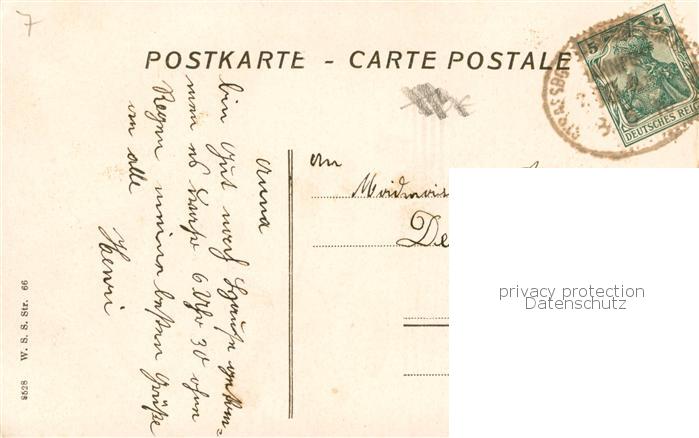 7
POSTKARTE - CARTE POSTALE
5 5
DEUTSCHES REI
STRASSBG
Anna
bin Gut nach Hause gekom=
men es war 6 Uhr 30 ohne
Regen meine besten Grüße
an alle
Henri
An
De
privacy protection
Datenschutz
8528 W. S. S. Str. 66